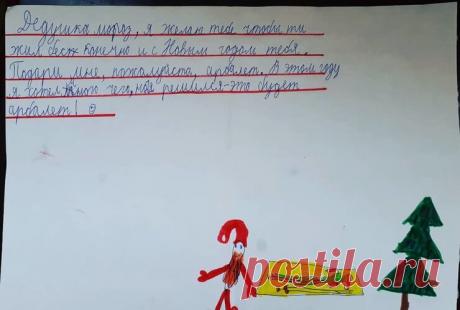 Дедушка мороз, я желаю тебе чтобы ти
жил бесконечно и с Новым годом тебя.
Подари мне, пожалуйста, арбалет. В этом году
я хотел много чего, но я решился-это будет
арбалет! ☺
postila.ru